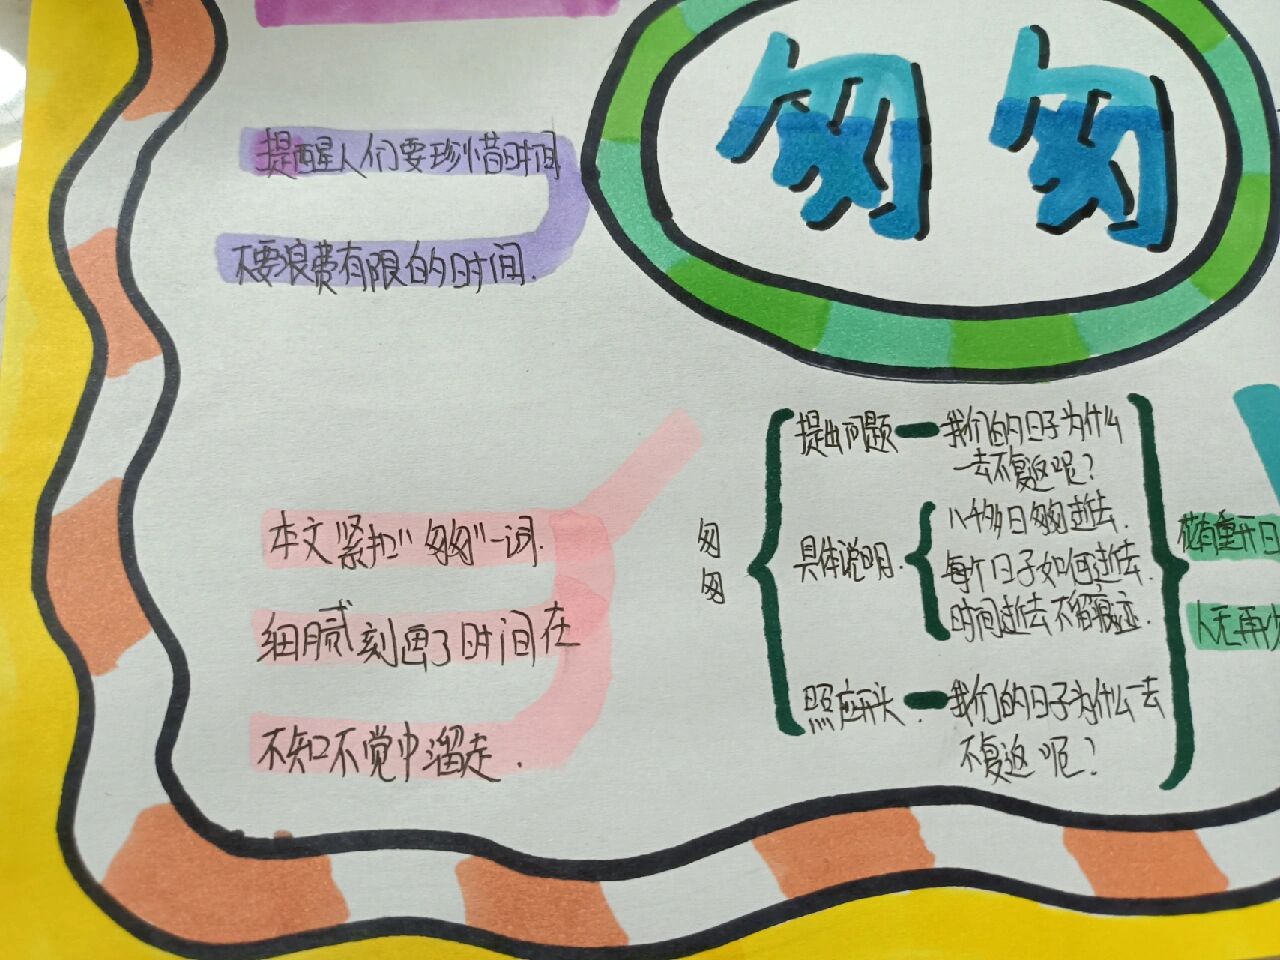 匆匆
提醒人们要珍惜时间
不要浪费有限的时间.
本文紧扣"匆匆"一词.
细腻刻画了时间在
不知不觉中溜走.
匆
匆
提出问题
我们的日子为什么
一去不复返呢?
具体说明.
八千多日匆匆逝去.
每个日子如何逝去.
时间逝去不留痕迹.
照应开头.
我们的日子为什么一去
不复返呢?
花有重开日
人无再少